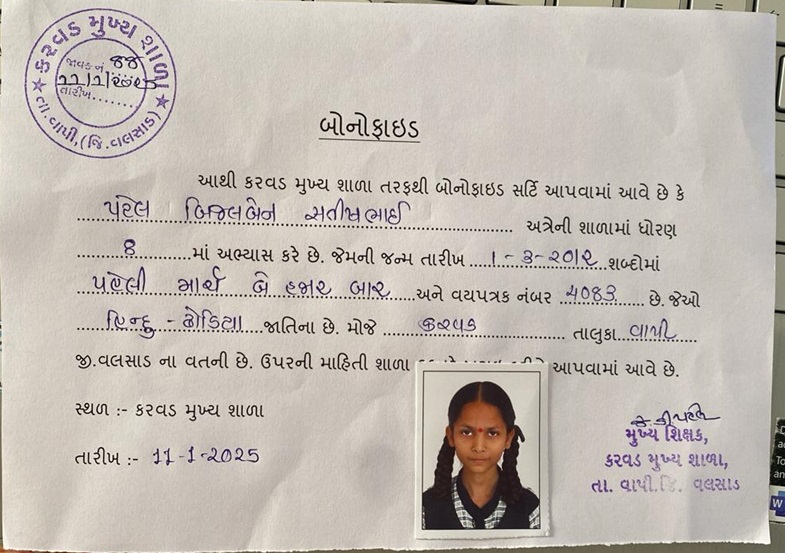 કરવડ મુખ્ય શાળા
જાવક નં. 88
11/1/2025
તારીખ........
તા.વાપી,(જિ.વલસાડ)
બોનોફાઇડ
આથી કરવડ મુખ્ય શાળા તરફથી બોનોફાઇડ સર્ટિ આપવામાં આવે છે કે
પટેલ બિજલબેન સતીષભાઈ અત્રેની શાળામાં ધોરણ
8 માં અભ્યાસ કરે છે. જેમની જન્મ તારીખ 1-3-2012 શબ્દોમાં
પહેલી માર્ચ બે હજાર બાર અને વયપત્રક નંબર 4083 છે. જેઓ
હિન્દુ - ધોડિયા જાતિના છે. મોજે કરવડ તાલુકા વાપી
જી.વલસાડ ના વતની છે. ઉપરની માહિતી શાળા આપવામાં આવે છે.
સ્થળ :- કરવડ મુખ્ય શાળા
તારીખ :- 11-1-2025
મુખ્ય શિક્ષક,
કરવડ મુખ્ય શાળા,
તા. વાપી.જિ. વલસાડ